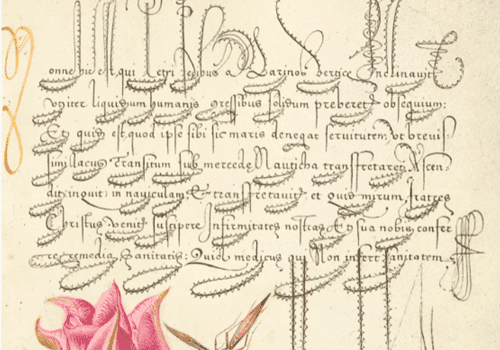 onne hic est, qui Petri pedibus a Marinos vertice Inclinavit
Vt iter liquidum humanis gressibus solidum preberet obsequium:
Et quid est quod ipse sibi sic maris denegat servitutem, vt brevis
simi lacus transitum sub mercede Nauticha transfretaret? Ascen
dit, inquit, in naviculam, Et transfretavit. et Quid mirum, fratres
Christus venit suscipere Infirmitates nostras, Et sua nobis confer
re remedia Sanitatis: Quia medicus qui Non infert sanitatem